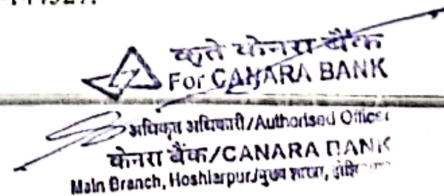 कृते केनरा बैंक
For CANARA BANK
अधिकृत अधिकारी/Authorised Officer
केनरा बैंक/CANARA BANK
Main Branch, Hoshiarpur/मुख्य शाखा,